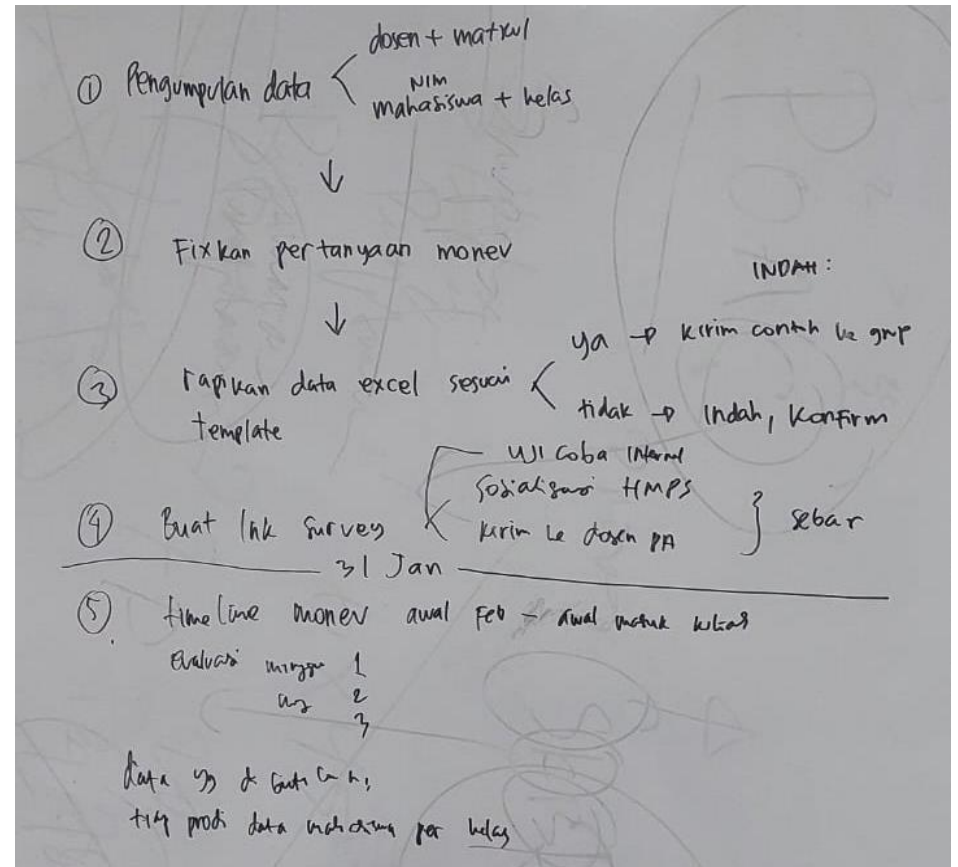 ① Pengumpulan data < dosen + matkul
NIM
mahasiswa + kelas
↓
② Fixkan pertanyaan monev
↓
INDAH :
③ rapikan data excel sesuai < ya → kirim contoh ke grup
template
tidak → Indah, Konfirm
④ Buat link survey < Uji Coba Internal
Sosialisasi HMPS
kirim ke dosen PA } sebar
31 Jan
⑤. timeline monev awal Feb - awal masuk kelas
Evaluasi minggu 1
2
3
data yg di
tiap prodi data mahasiswa per kelas